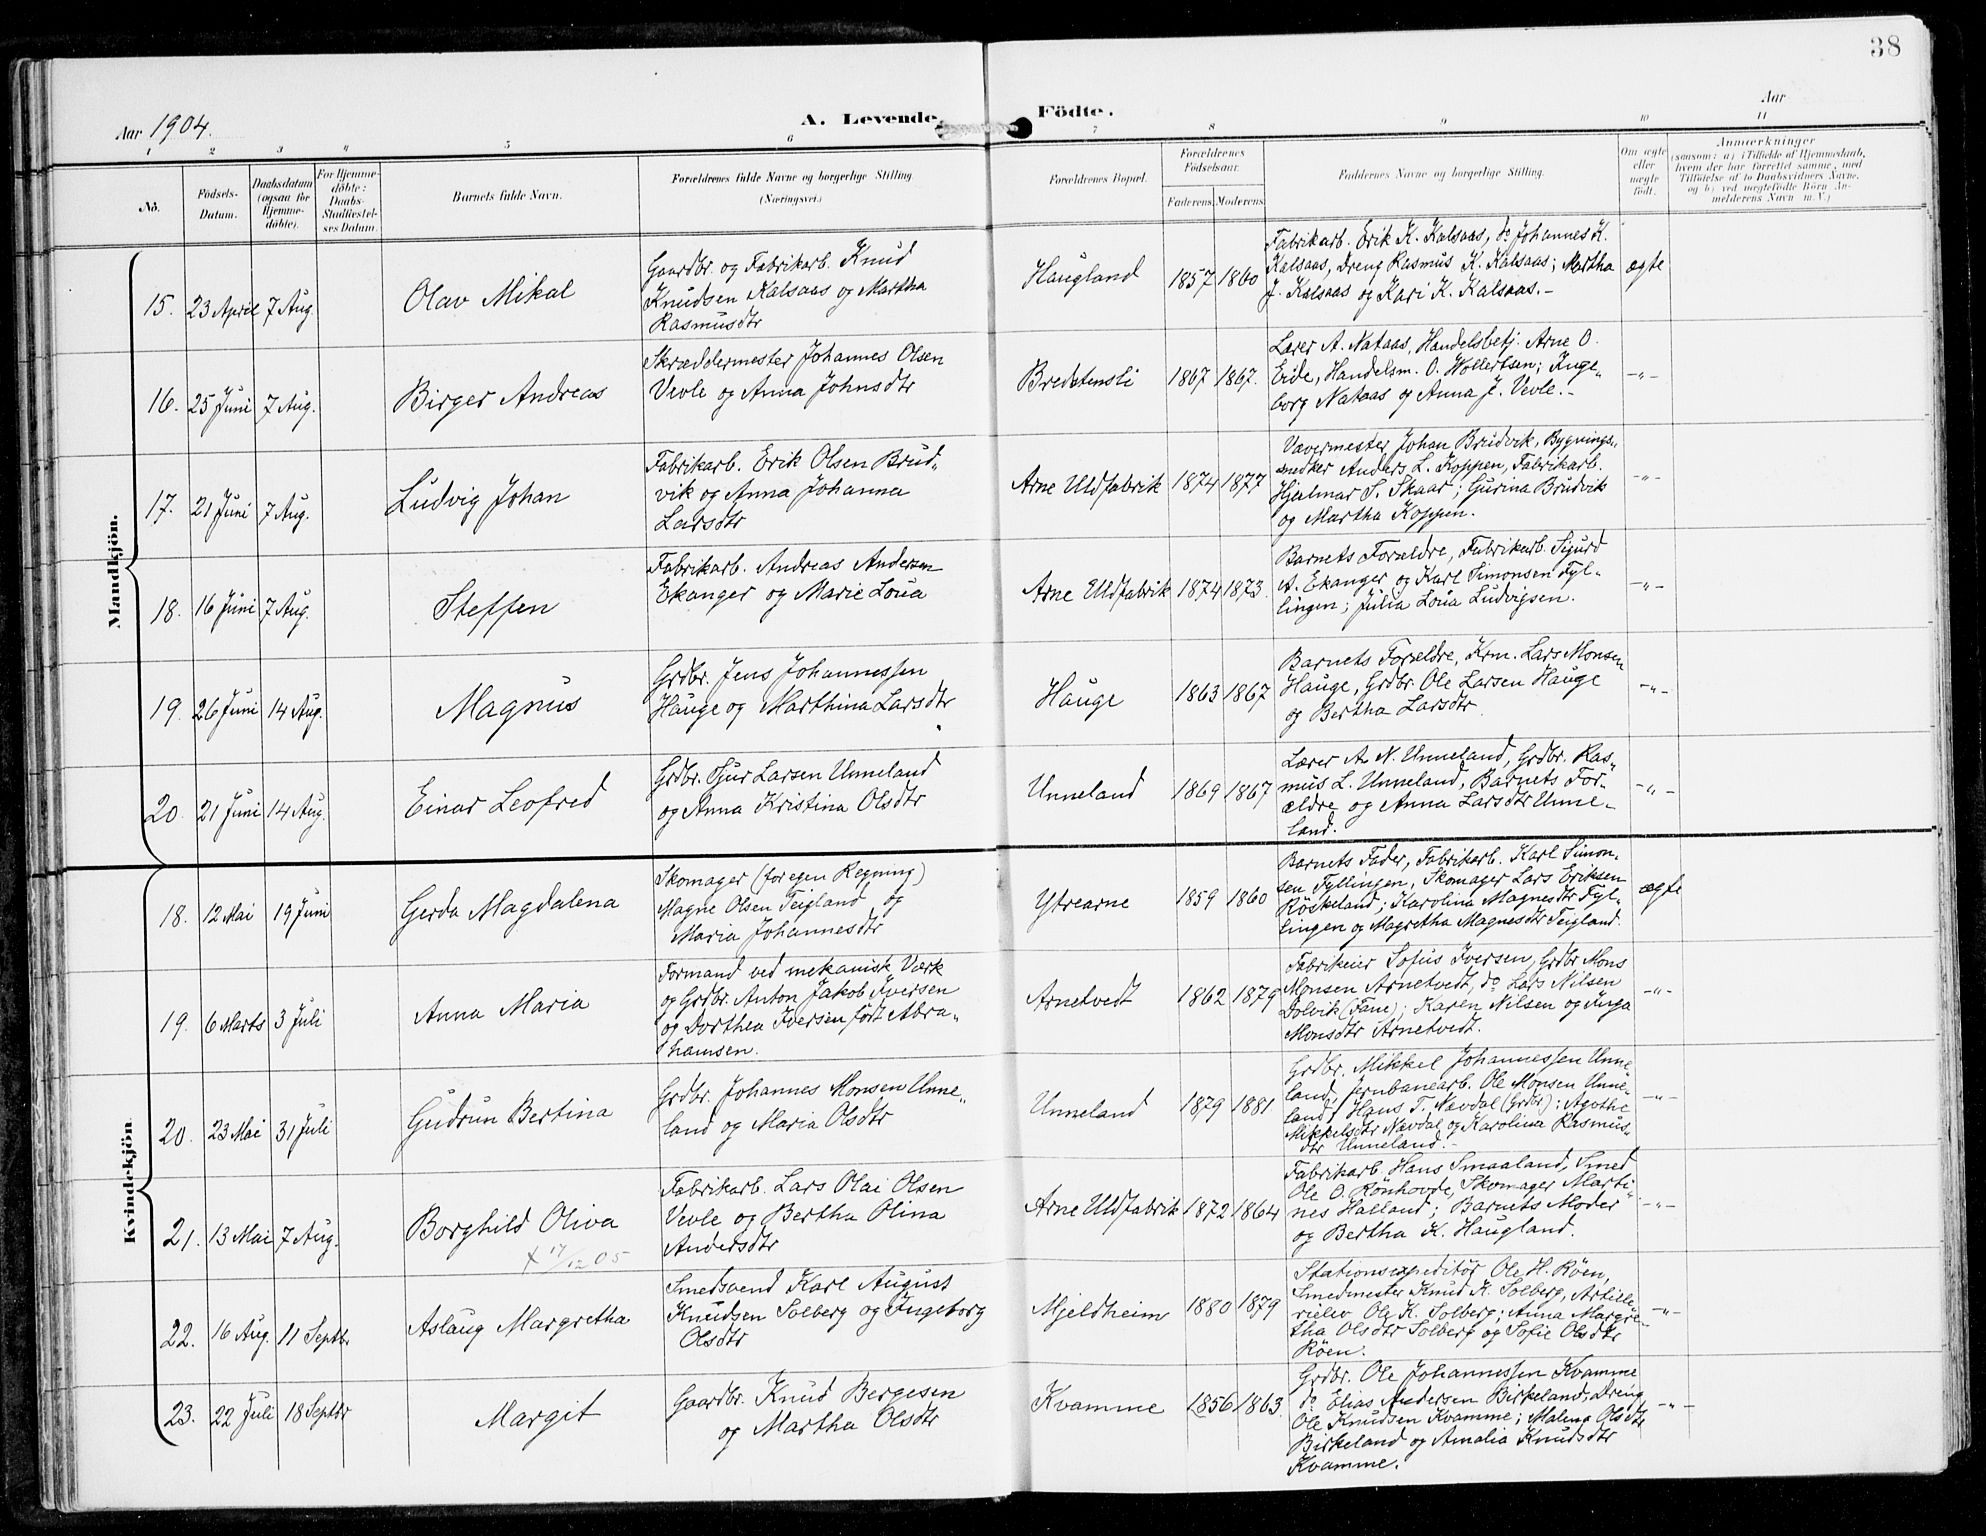 38
Aar 1904.
A. Levende Födte.
Aar
1 2 3 4 5 6 7 8 9 10 11
No.
Födsels-
Datum.
Daabsdatum
(ogsaa for
Hjemme-
döbte).
For Hjemme-
döbte:
Daabs-
Stadfæstel-
ses Datum.
Barnets fulde Navn.
Forældrenes fulde Navne og borgerlige Stilling.
(Næringsvei.)
Forældrenes Bopæl.
Forældrenes
Födselsaar.
Faderens. Moderens.
Faddernes Navne og borgerlige Stilling.
Om ægte
eller
uægte
födt.
Anmærkninger
(saasom: a) i Tilfælde af Hjemmedaab,
hvem der har forrettet samme, med
Tilföielse af to Daabsvidners Navne,
og b) ved uægtefödte Börn An-
melderens Navn m. V.)
Mandkjön.
15. 23 April 7 Aug. Olav Mikal
Gaardbr. og Fabrikarb. Knud
Knudsen Kalsaas og Martha
Rasmusdtr
Haugland 1857 1860
Fabrikarb. Erik K. Kalsaas, do Johannes K.
Kalsaas, Dreng Rasmus K. Kalsaas; Martha
J. Kalsaas og Kari K. Kalsaas.-
ægte
16. 25 Juni 7 Aug. Birger Andreas
Skræddermester Johannes Olsen
Vevle og Anna Johnsdtr
Bredstensli 1867 1867.
Lærer A. Nataas, Handelsbetj. Arne O.
Eide, Handelsm. O. Wollertsen; Inge-
borg Nataas og Anna J. Vevle.-
-"-
17. 21 Juni 7 Aug. Ludvig Johan
Fabrikarb. Erik Olsen Brud-
vik og Anna Johanna
Larsdtr
Arne Uldfabrik 1874 1877
Vævermester Johan Brudvik, Bygnings-
snedker Anders L. Koppen, Fabrikarb.
Hjalmar S. Skaar; Gurina Brudvik
og Martha Koppen.
-"-
18. 16 Juni 7 Aug. Steffen
Fabrikarb. Andreas Andersen
Ekanger og Marie Loua
Arne Uldfabrik 1874 1873.
Barnets Forældre, Fabrikarb. Sigurd
A. Ekanger og Karl Simonsen Fyl-
lingen; Julia Loua Ludvigsen.
-"-
19. 26 Juni 14 Aug. Magnus
Grdbr. Jens Johannessen
Hauge og Marthina Larsdtr
Hauge 1863 1867
Barnets Forældre, Krm. Lars Monsen
Hauge, Grdbr. Ole Larsen Hauge
og Bertha Larsdtr.
-"-
20. 21 Juni 14 Aug. Einar Leofred
Grdbr. Tjur Larsen Unneland
og Anna Kristina Olsdtr
Unneland 1869 1867
Lærer A. N. Unneland, Grdbr. Ras-
mus L. Unneland, Barnets For-
ældre og Anna Larsdtr Unne-
land.
-"-
Kvindekjön
18. 12 Mai 19 Juni Gerda Magdalena
Skomager (for egen Regning)
Magne Olsen Teigland og
Maria Johannesdtr
Ytrearne 1859 1860
Barnets Fader, Fabrikarb. Karl Simon-
sen Fyllingen, Skomager Lars Eriksen
Röskeland; Karolina Magnesdtr Fyl-
lingen og Magretha Magnesdtr Teigland.
ægte
19. 6 Marts 3 Juli Anna Maria
Formand ved mekanisk Værk
og Grdbr. Anton Jakob Iversen
og Dorthea Iversen født Abra-
hamsen.
Arnetvedt 1862 1879
Fabrikeier Sofus Iversen, Grdbr Mons
Monsen Arnetvedt, do Lars Nilsen
Dolvik (Fane); Karen Nilsen og Inga
Monsdtr Arnetvedt.
-"-
20. 23 Mai 31 Juli Gudrun Bertina
Grdbr. Johannes Monsen Unne-
land og Maria Olsdtr
Unneland 1879 1881
Grdbr. Mikkel Johannessen Unne-
land, Jernbanearb. Ole Monsen Unne-
land, Hans T. Nævdal (Grdbr); Agothe
Mikkelsdtr Nævdal og Karolina Rasmus-
dtr Unneland.-
-"-
21. 13 Mai 7 Aug. Borghild Oliva
+ 17/12 05
Fabrikarb. Lars Olai Olsen
Vevle og Bertha Olina
Andersdtr
Arne Uldfabrik 1872 1864
Fabrikarb. Hans Smaaland, Smed
Ole O. Rönhovde, Skomager Marti-
nes Halland; Barnets Moder
og Bertha K. Haugland.
-"-
22. 16 Aug. 11 Septbr. Aslaug Margretha
Smedsvend Karl August
Knudsen Solberg og Ingeborg
Olsdtr
Mjeldheim 1880 1879
Stationsexpeditör Ole H. Röen,
Smedmester Knud K. Solberg, Artille-
rielev Ole K. Solberg; Anna Margre-
tha Olsdtr Solberg og Sofie Olsdtr
Röen.
-"-
23. 22 Juli 18 Septbr Margit
Gaardbr. Knud Bergesen
og Martha Olsdtr
Kvamme 1856 1863.
Grdbr. Ole Johannessen Kvamme
do Elias Andersen Birkeland, Dreng
Ole Knudsen Kvamme; Malena Olsdtr
Birkeland og Amalia Knudsdtr
Kvamme.
-"-